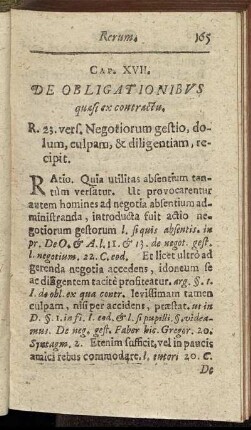 Rerum. 165
CAP. XVII.
DE OBLIGATIONIBVS
quasi ex contractu.
R. 23. vers. Negotiorum gestio, do-
lum, culpam, & diligentiam, re-
cipit.
RAtio. Quia utilitas absentium tan-
tùm versatur. Ut provocarentur
autem homines ad negotia absentium ad-
ministranda, introducta fuit actio ne-
gotiorum gestorum l. si quis absentis. in
pr. De O. & A. l. 11. & 13. de negot. gest.
l. negotium. 22. C. eod. Et licet ultrò ad
gerenda negotia accedens, idoneum se
ac diligentem tacitè profiteatur. arg. §. 1.
I. de obl. ex qua contr. levissimam tamen
culpam, nisi per accidens, præstat. ut in
D. §. 1. in fi. l. eod. & l. si pupilli. §. videa-
mus. De neg. gest. Faber hic. Gregor. 20.
Syntagm. 2. Etenim sufficit, vel in paucis
amici rebus commodare. l. tutori 20. C.
De